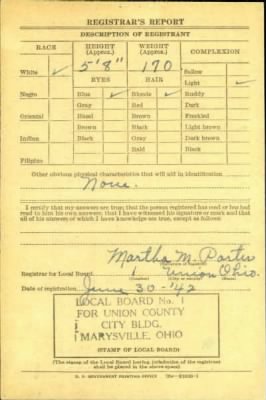 REGISTRAR'S REPORT
DESCRIPTION OF REGISTRANT
RACE HEIGHT (Approx.) WEIGHT (Approx.) COMPLEXION
5'8" 170 Sallow
White ✓ EYES HAIR Light ✓
Negro Blue ✓ Blonde ✓ Ruddy
Gray Red Dark
Oriental Hazel Brown Freckled
Brown Black Light brown
Indian Black Gray Dark brown
Bald Black
Filipino
Other obvious physical characteristics that will aid in identification
None.
I certify that my answers are true; that the person registered has read or has had
read to him his own answers; that I have witnessed his signature or mark and that
all of his answers of which I have knowledge are true, except as follows:
Martha M. Porter
Registrar for Local Board 1 Union Ohio.
Date of registration June 30-'42
LOCAL BOARD No. 1
FOR UNION COUNTY
CITY BLDG.
MARYSVILLE, OHIO
(STAMP OF LOCAL BOARD)
(The stamp of the Local Board having jurisdiction of the registrant
shall be placed in the above space)
U. S. GOVERNMENT PRINTING OFFICE